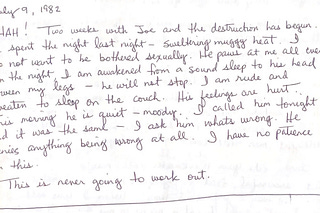 uly 9, 1982
HAH! Two weeks with Joe and the destruction has begun.
spent the night last night - sweltering muggy heat. I
o not want to be bothered sexually. He paws at me all even
n the night, I am awakened from a sound sleep to his head
ween my legs - he will not stop. I am rude and
eaten to sleep on the couch. His feelings are hurt.
his morning he is quiet - moody. I called him tonight
d it was the same - I ask him whats wrong. He
enies anything being wrong at all. I have no patience
r this.
This is never going to work out.